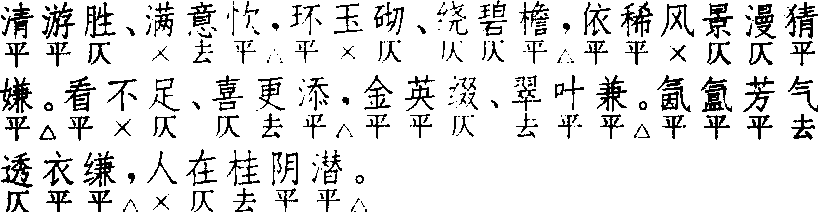 清游胜、满意忺,环玉砌、绕碧檐,依稀风景漫猜
平平仄 ×去平△平×仄 仄仄平△平平×仄仄平
嫌。看不足、喜更添,金英缀、翠叶兼。氤氲芳气
平△平×仄 仄去平△平平仄 去平平△平平平去
透衣缣,人在桂阴潜。
仄平平△×仄去平平△